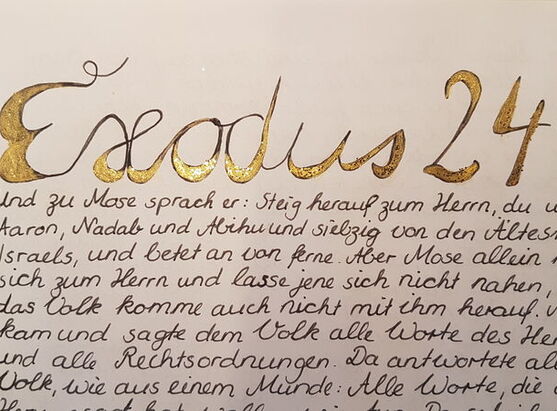 Exodus 24
und zu Mose sprach er: Steig herauf zum Herrn, du u
Aaron, Nadab und Abihu und siebzig von den Ältes
Israels, und betet an von ferne. Aber Mose allein
sich zum Herrn und lasse jene sich nicht nahen,
das Volk komme auch nicht mit ihm herauf.
kam und sagte dem Volk alle Worte des Her
und alle Rechtsordnungen. Da antwortete al
Volk, wie aus einem Munde: Alle Worte, die